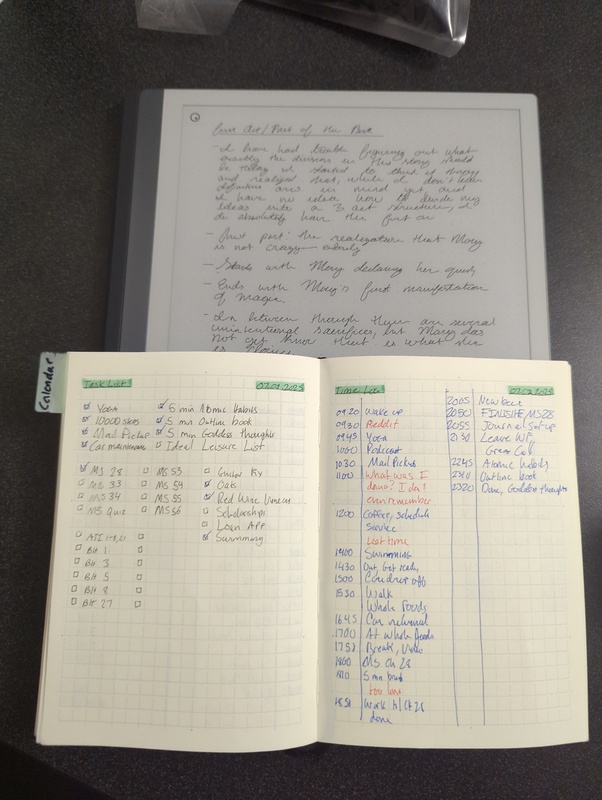 First Act/Part of the Book
- I have had trouble figuring out what
exactly the division in this story should
be. Today I started to think of things
and realized that, while I don't have
definitive arcs in mind yet, and
I have no idea how to divide my
ideas into a 3 act structure, I
do absolutely have this first
- First part: the realization that Mary
is not crazy
- Starts with Mary declaring her
- Ends with Mary's first manifestation
of magic.
- In between through there are several
unintentional sacrifices, but Mary does
not yet know that is what she
is
Calendar
Task List
02.02.2025
Yoga
10000 steps
Mail Pickup
Car maintenance
5 min Atomic Habits
5 min Outline book
5 min Goddess thoughts
Ideal Leisure List
MS 28
MS 33
MS 34
MS Quiz
MS 53
MS 54
MS 55
MS 56
Oats
Red Wine Vinegar
Scholarships
Loan App
Swimming
BH 1
BH 3
BH 5
BH 8
BH 27
Time Log
02.02.2025
0920 wake up
0930 Reddit
0945 Yoga
1000 Podcast
1030 Mail Pickup
1100 What was I
doing? I don't
even remember
1200 Coffee, schedule
service
Lost time
1400 Swimming
1430 Out, Get ready
1500 Car drop off
1530 Walk
Whole Foods
1645 Car retrieval
1700 At Whole foods
1758 Break,
1800 MS Ch 28
1810 5 min break
too long
1851 Work MS Ch 28
done
2005 New beer
2050 FINISH MS28
2055 Journal Set up
2130 Leave WF,
Call
2245 Atomic habits
2310 Outline book
2320 Done, Goddess thoughts